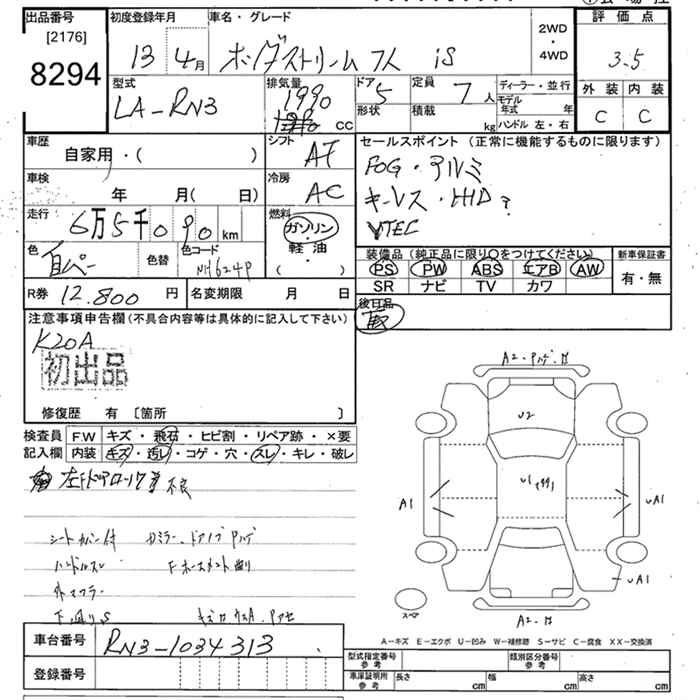 出品番号
[2176]
8294
初度登録年月
13 4月
車名・グレード
ホンダストリーム iS
2WD
・
4WD
評価点
3.5
外装 内装
C C
型式
LA-RN3
排気量
1990
cc
ドア
5
形状
定員
7人
積載
kg
ディーラー・並行
モデル年式 年
ハンドル 左・右
車歴
自家用・( )
シフト
AT
車検
年 月( 日)
冷房
AC
走行
6万5千090km
燃料
ガソリン
・
軽油
・
( )
色
白パー
色替
色コード
NH624P
セールスポイント(正常に機能するものに限ります)
FOG・アルミ
キーレス・HID
VTEC
装備品(純正品に限り○をつけてください)
PS PW ABS エアB AW
SR ナビ TV カワ
新車保証書
有・無
R券 12.800円
名変期限 月 日
後日品
注意事項申告欄(不具合内容等は具体的に記入して下さい)
K20A
初出品
修復歴 有 〔箇所 〕
検査員
記入欄
F.W キズ・飛石・ヒビ割・リペア跡・×要
内装 キズ・汚レ・コゲ・穴・スレ・キレ・破レ
不良
シートカバー付
ハンドルスレ
外マフラー
A2
U2
U1
A1
UA1
UA1
A2
スペア
A-キズ E-エクボ U-凹み W-補修跡 S-サビ C-腐食 XX-交換済
車台番号
RN3-1034313
登録番号
型式指定番号
参考
類別区分番号
参考
車庫証明所
参考
長さ cm
幅 cm
高さ cm